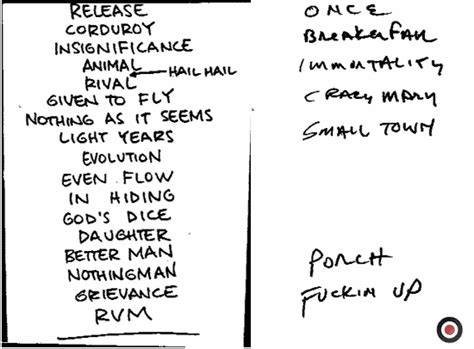 RELEASE
CORDUROY
INSIGNIFICANCE
ANIMAL
HAIL HAIL
RIVAL
GIVEN TO FLY
NOTHING AS IT SEEMS
LIGHT YEARS
EVOLUTION
EVEN FLOW
IN HIDING
GOD'S DICE
DAUGHTER
BETTER MAN
NOTHINGMAN
GRIEVANCE
RVM
ONCE
BREAKERFALL
IMMORTALITY
CRAZY MARY
SMALL TOWN
PORCH
FUCKIN UP